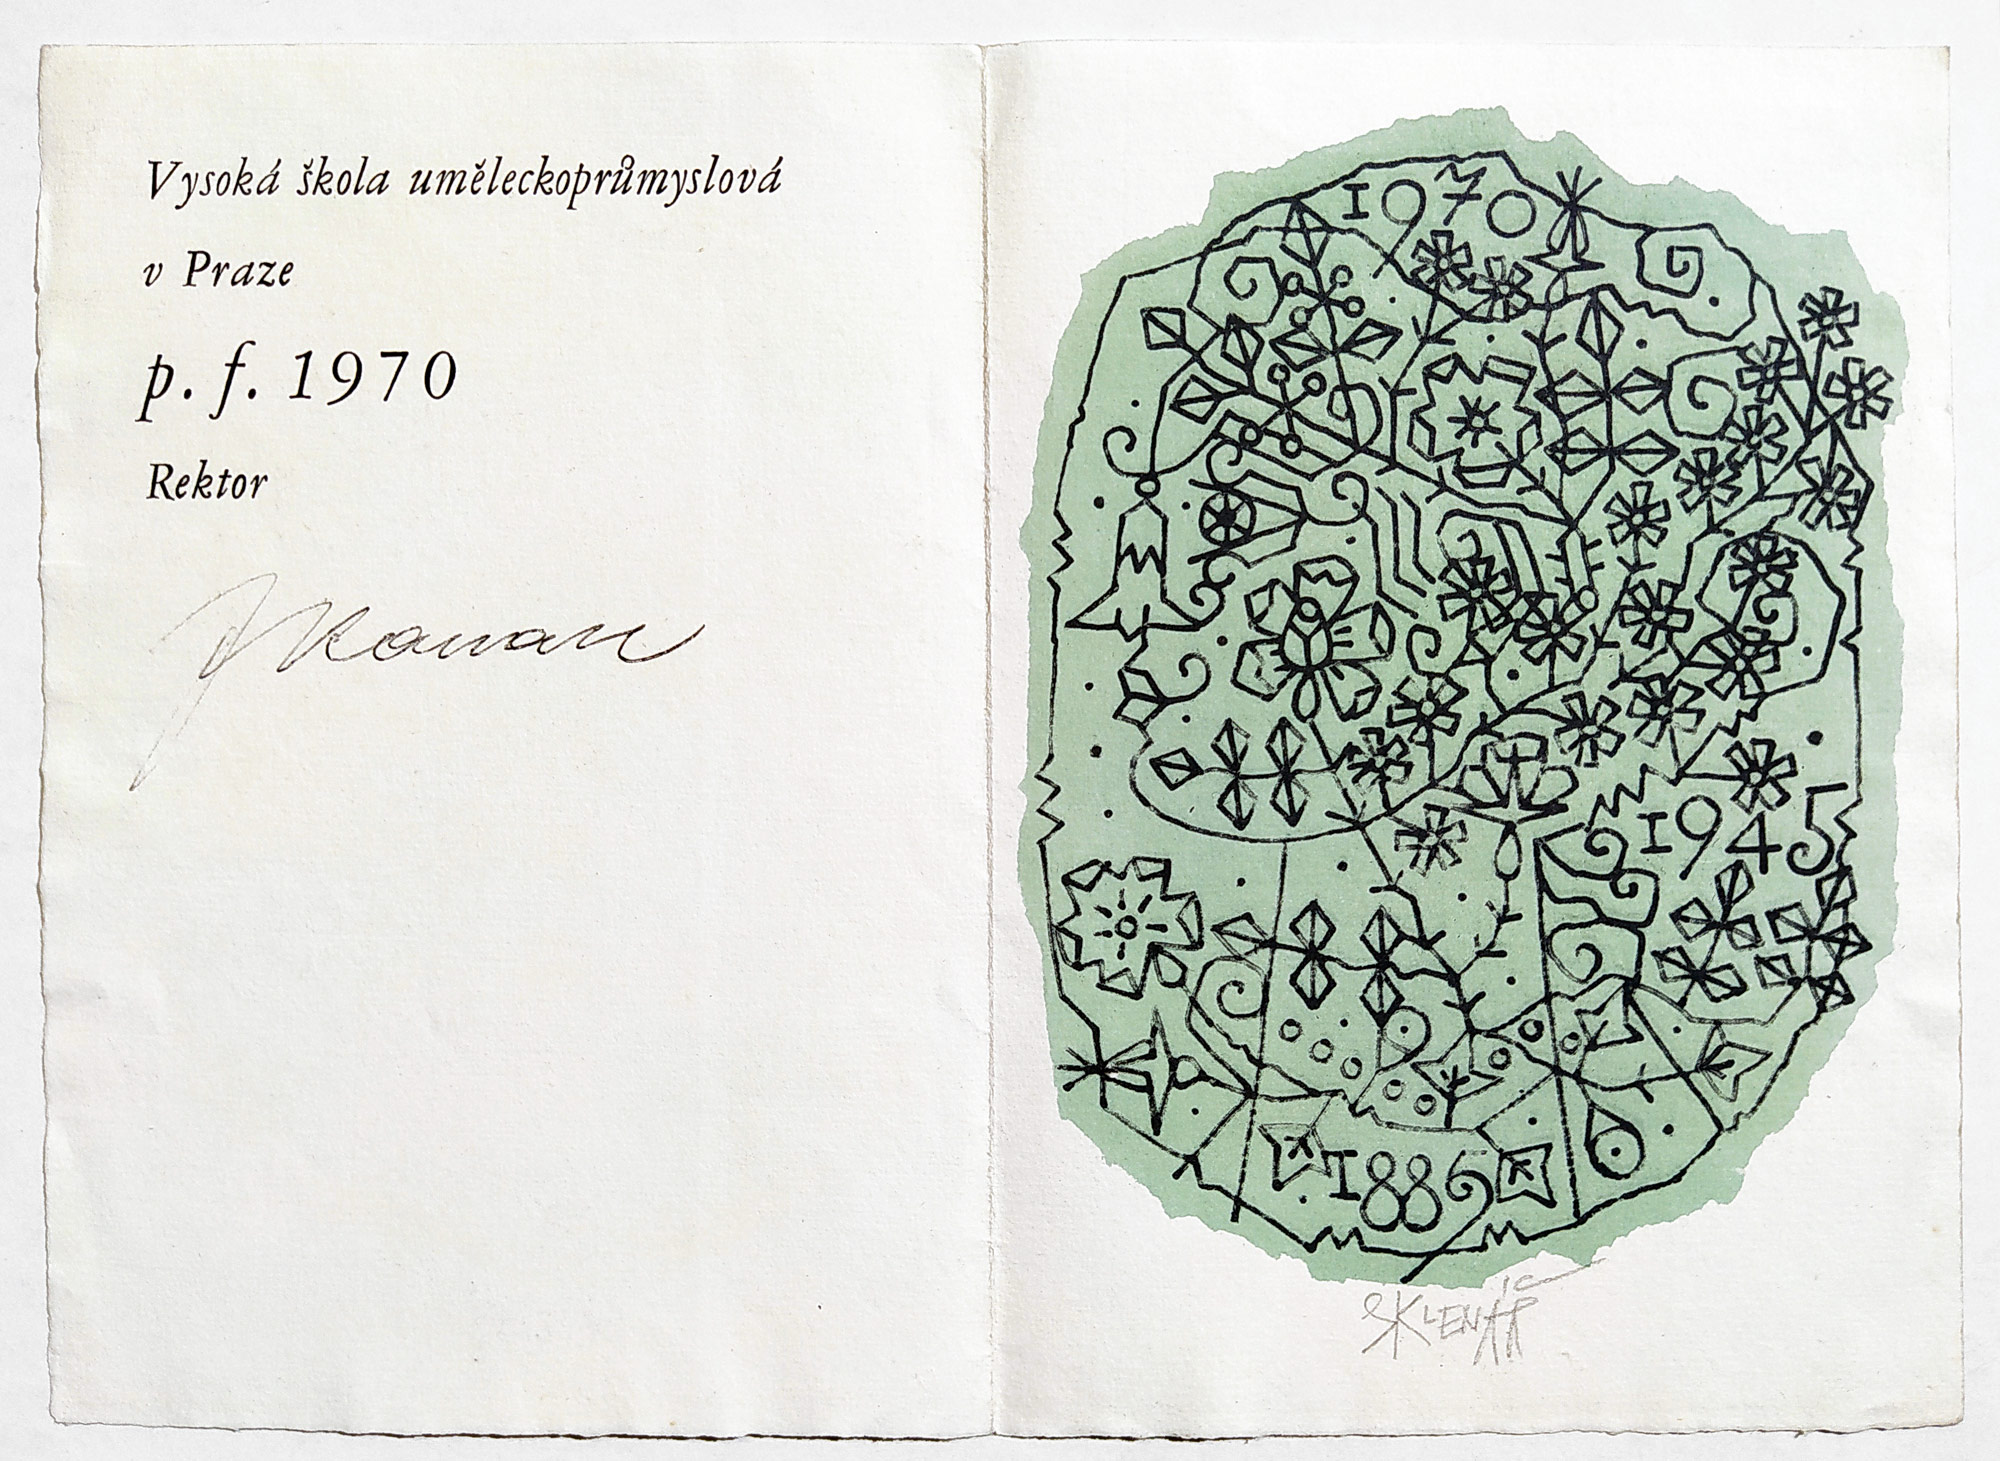 Vysoká škola uměleckoprůmyslová
v Praze
p. f. 1970
Rektor
1970
1945
1886
SKLENÁŘ